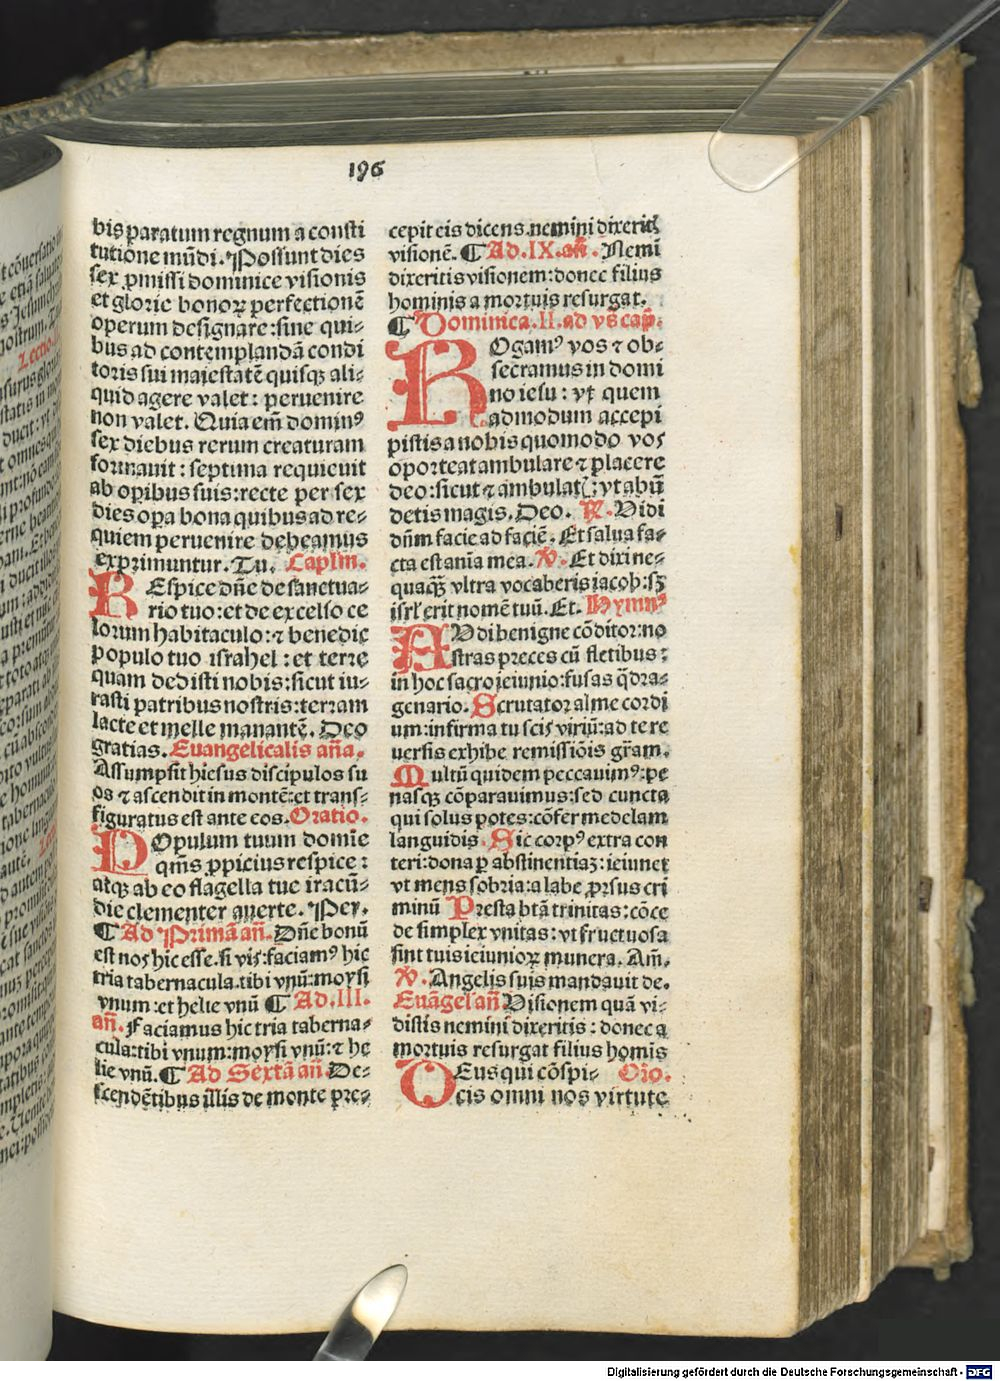 196
bis paratum regnum a consti
tutione mūdi. Possunt dies
sex ꝓmissi dominice visionis
et glorie bonoꝝ perfectionē
operum designare: sine qui⸗
bus ad contemplandā condi
toris sui maiestatē quisqꝫ ali⸗
quid agere valet: peruenire
non valet. Quia em̄ dominꝰ
sex diebus rerum creaturam
formauit: septima requieuit
ab oꝑibus suis: recte per sex
dies oꝑa bona quibus ad re⸗
quiem peruenire debeamus
exprimuntur. Tu. Capl̄m.
REspice dn̄e de sanctua⸗
rio tuo: et de excelso ce
lorum habitaculo: ⁊ benedic
populo tuo israhel: et terre
quam dedisti nobis: sicut iu⸗
rasti patribus nostris: terram
lacte et melle manantē. Deo
gratias. Euangelicalis an̄a.
Assumpsit hiesus discipulos su
os ⁊ ascendit in montē: et trans⸗
figuratus est ante eos. Oratio.
POpulum tuum domīe
qm̄s ꝓpicius respice:
atqꝫ ab eo flagella tue iracū⸗
die clementer auerte. Per.
¶ Ad Primā an̄. Dn̄e bonū
est nos hic esse. si vis: faciamꝰ hic
tria tabernacula. tibi vnū: moysi
vnum: et helie vnū ¶ Ad. III.
an̄. Faciamus hic tria taberna⸗
cula: tibi vnum: moysi vnū: ⁊ he
lie vnū. ¶ Ad Sextā an̄. De⸗
scendētibus illis de monte pre⸗
cepit eis dicens. nemini dixeritis
visionē. ¶ Ad. IX. an̄. Nemī
dixeritis visionem: donec filius
hominis a mortuis resurgat.
¶ Dominica. II. ad vs̄ cap̄.
ROgamꝰ vos ⁊ ob⸗
secramus in domi
no iesu: vt quem
admodum accepi
pistis a nobis quomodo vos
oporteat ambulare ⁊ placere
deo: sicut ⁊ ambulat̄: vt abū
detis magis. Deo. ℟. Vidi
dn̄m facie ad faciē. Et salua fa⸗
cta est an̄ia mea. ℣. Et dixi ne⸗
quaqꝫ vltra vocaberis iacob: sꝫ
isrl̄ erit nomē tuū. Et. Hymnꝰ
AVdi benigne cōditor: no
stras preces cū fletibus:
in hoc sacro ieiunio: fusas q̄dra⸗
genario. Scrutator alme cordi
um: infirma tu scis viriū: ad te re
uersis exhibe remissiōis gr̄am.
Multū quidem peccauimꝰ: pe
nasqꝫ cōparauimus: sed cuncta
qui solus potes: cōfer medelam
languidis. Sic corpꝰ extra con
teri: dona ꝑ abstinentiaꝫ: ieiunet
vt mens sobria: a labe ꝓrsus cri
minū Presta btā trinitas: cōce
de simplex vnitas: vt fructuosa
sint tuis ieiunioꝝ munera. Am̄.
℣. Angelis suis mandauit de.
Euāgel an̄ Visionem quā vi⸗
distis nemini dixeritis: donec a
mortuis resurgat filius homīs
DEus qui cōspi⸗ Orō.
cis omni nos virtute
Digitalisierung gefördert durch die Deutsche Forschungsgemeinschaft - DFG